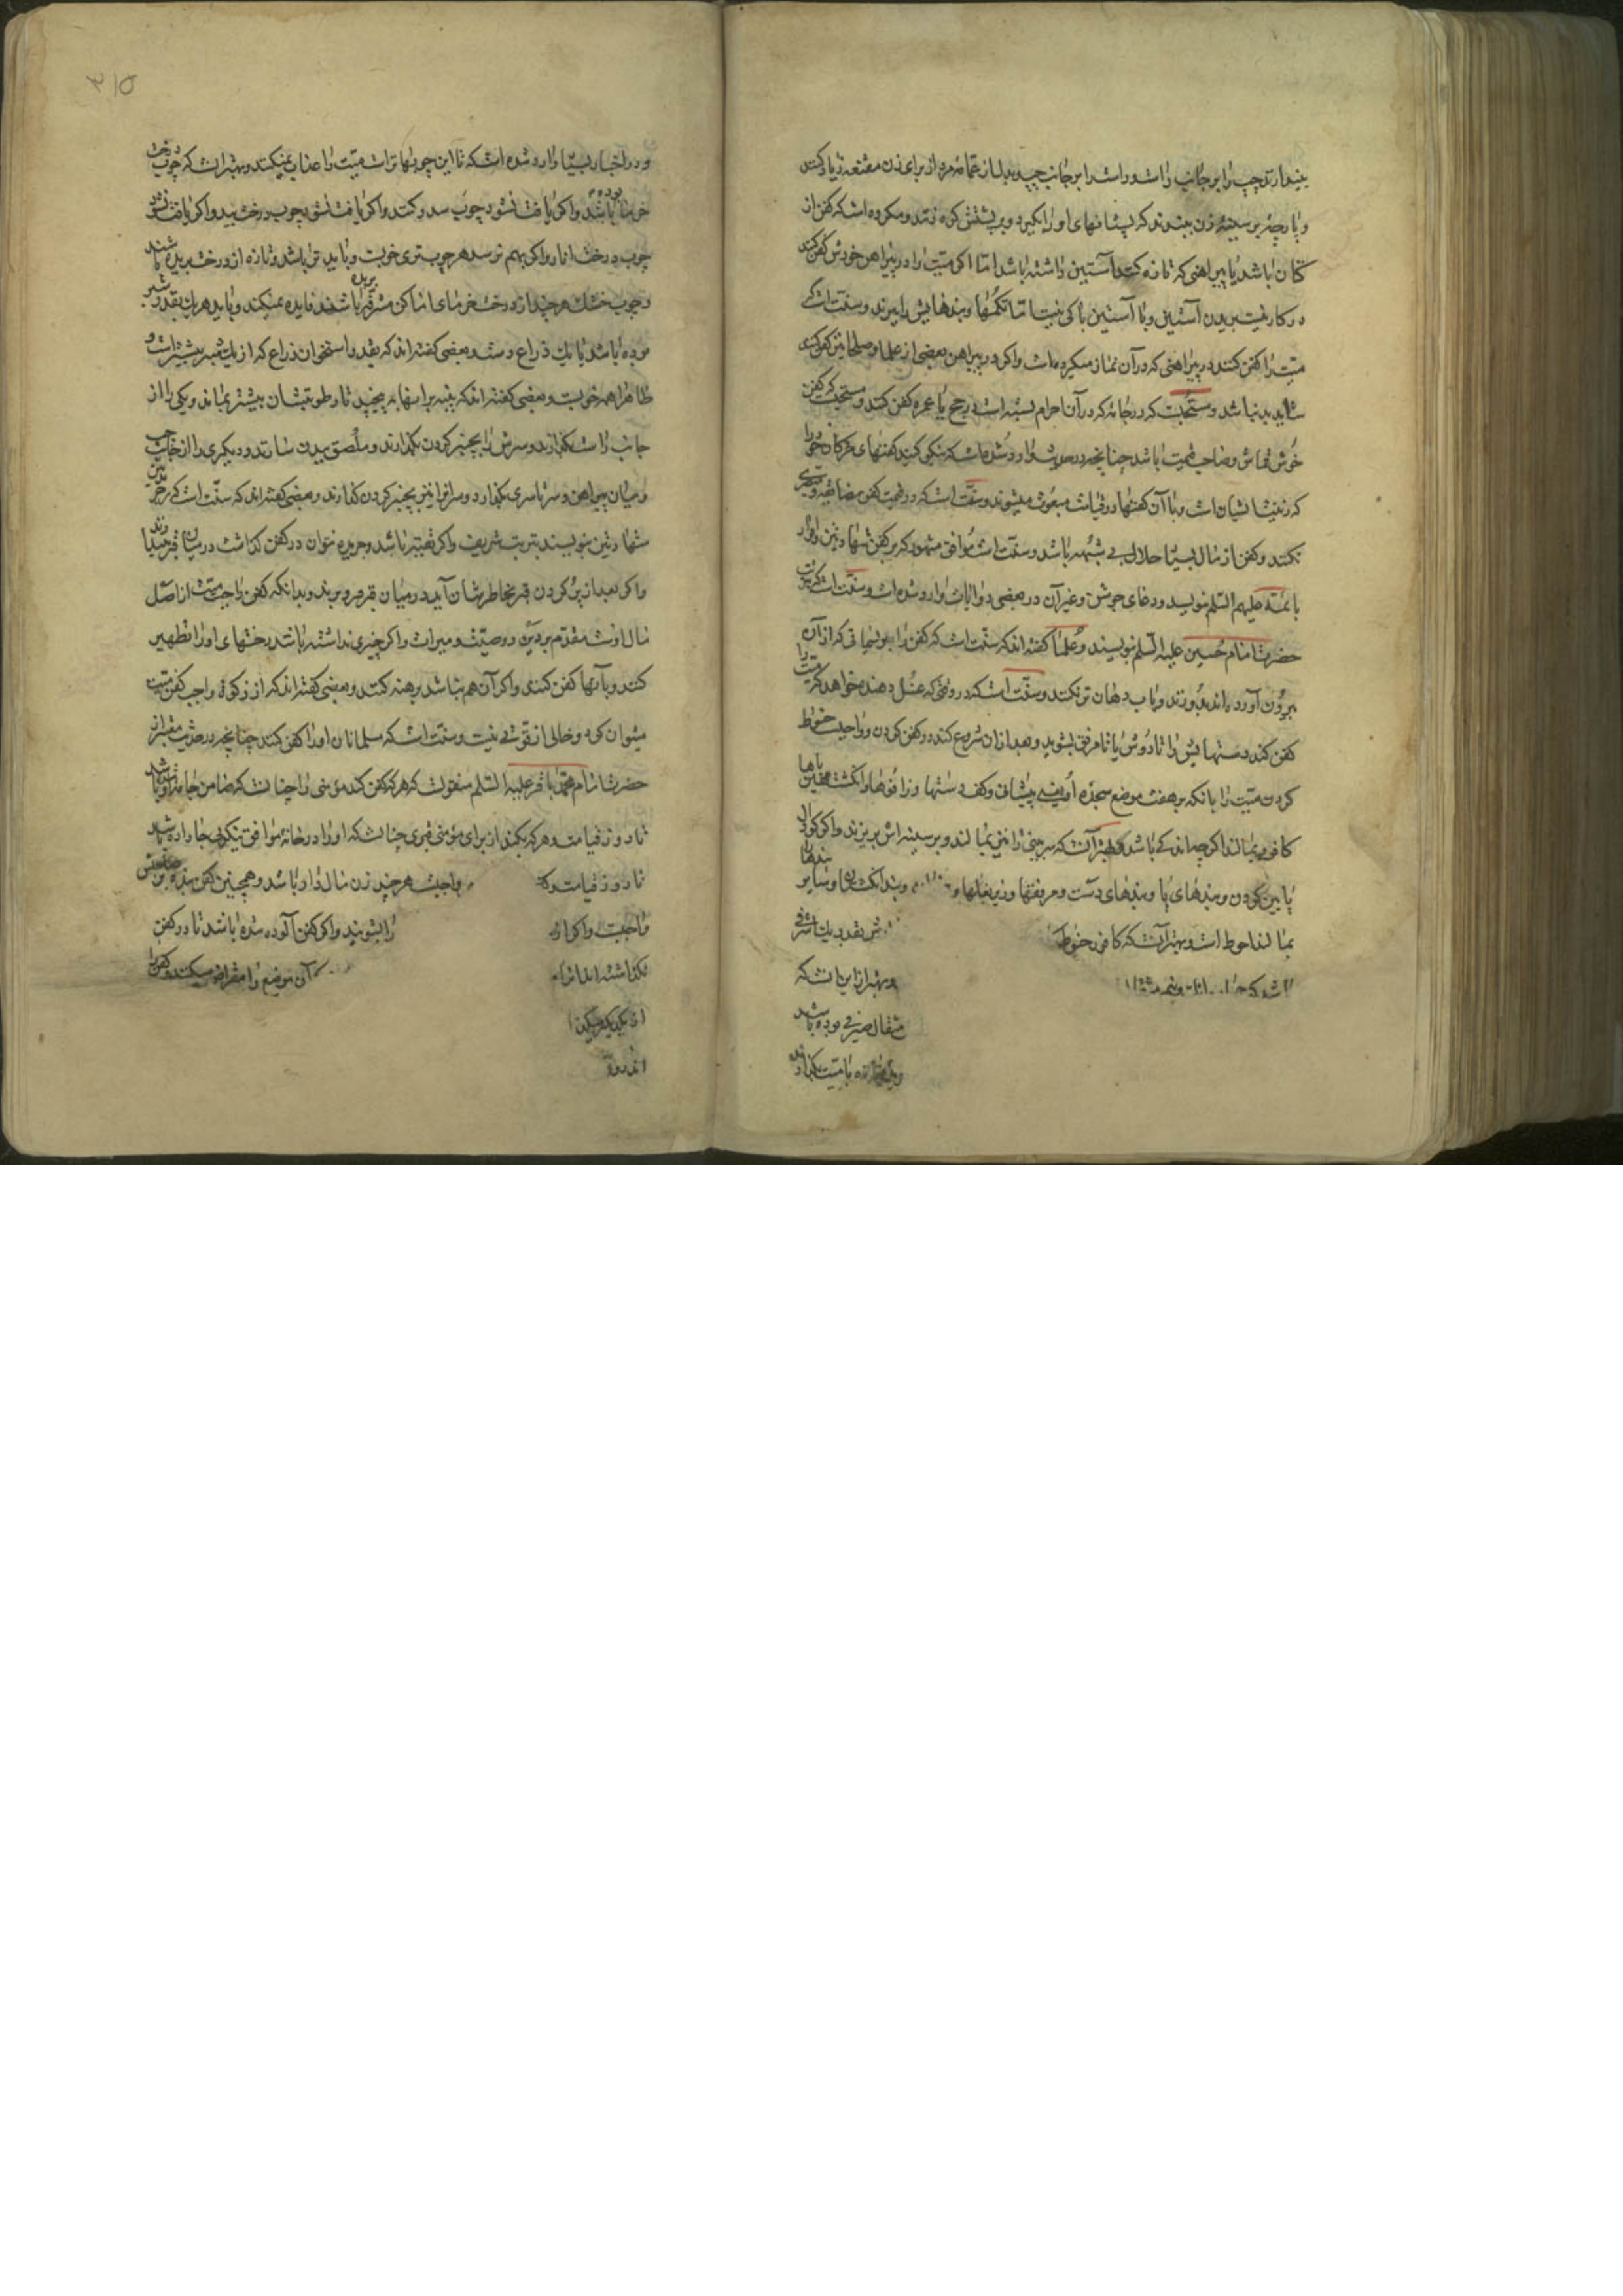 بیندازند چپ را بر جانب راست و راست را بر جانب چپ و بدل از عمامه مرد از برای زن مقنعه زیاد کنند
و پارچهٔ بر سینهٔ زن ببندند که پستانهای او را بگیرد و بر پشتش گره زنند و مکروه است که کفن از
کتان باشد یا پیراهنی که تازه کنند آستین داشته باشد اما اگر میت را در پیراهن خودش کفن کنند
در کار نیست بریدن آستین و با آستین باکی نیست اما تکمها و بندهایش را ببرند و سنت است که
میت را کفن کنند در پیراهنی که در آن نماز میکرده است و اگر در پیراهن بعضی از علما و صلحا نیز کفن کنند
شاید بد نباشد و مستحبست که در جامهٔ که در آن احرام بسته است در حج یا عمره کفن کنند و مستحبست که کفن
خوش قماش و صاحب قیمت باشد چنانچه در حدیث وارد شده است که نیکو کنید کفنهای مردگان خود را
که زینت ایشان است و با آن کفنها در قیامت مبعوث میشوند و سنت است که در قیمت کفن مضایقه و
نکنند و کفن از مال بسیار حلال بی شبهه باشد و سنت است موافق مشهور که بر کفن شهادتین و اقرار
بائمه علیهم السلم بنویسند و دعای جوشن و غیر آن در بعضی روایات وارد شده است و سنت است که بتربت
حضرت امام حسین علیه السلم بنویسند و علما گفته اند که سنت است که کفن را بریسمانی که از آن
بیرون آورده اند بدوزند و بآب دهان تر نکنند و سنت است که در وقتی که غسل دهنده خواهد که میت را
کفن کند دستهایش را تا دوش یا تا مرفق بشوید و بعد از آن شروع کند در کفن کردن و واجبست حنوط
کردن میت را بانکه بر هفت موضع سجده او یعنی پیشانی و کف دستها و زانوها و انگشت مهین پاها
کافور بمالند اگر چه اندکی باشد و بهتر آنست که سر بینی را نیز بمالند و بر سینه اش بریزند و اگر
پایین گردن و بندهای پا و بندهای دست و مرفقها و زیر بغلها و بند انگشتان و سایر بندها
بمالند احوط است و بهتر آنست که کافور حنوط بقدر یک اشرفی
باشد که و بهتر از این آنست که
مثقال صیرفی بوده باشد
با میت بگذارند
۳۱۵
و در اخبار بسیار وارد شده است که تا این چوبها تر است میت را عذاب نمیکنند و بهتر انست که چوب درخت
خرما بوده باشد و اگر یافت نشود چوب سدر کنند و اگر یافت نشود چوب درخت بید و اگر یافت نشود
چوب درخت انار و اگر بهم نرسد هر چوب تری خوبست و باید تر باشد و تازه از درخت بریده باشند
و چوب خشک هر چند از درخت خرمای اماکن مشرفه باشند فایده نمیکند و باید هر یک بقدر شبر
بوده باشد یا یک ذراع دست و بعضی گفته اند که بقدر استخوان ذراع که از یک شبر بیشتر است و
ظاهرا همه خوبست و بعضی گفته اند که پنبه بر انها به پیچید تا رطوبتشان بیشتر بماند و یکی را از
جانب راست بگذارند و سرش را بچنبر گردن بگذارند و ملصق ببدن سازند و دیگری را از جانب چپ
و میان پیراهن و سرتاسری بگذارد و سر انرا نیز بچنبر گردن گذارند و بعضی گفته اند که سنت است که بر جریدتین
شهادتین بنویسند بتربت شریف و اگر تقیه باشد و جریده نتوان در کفن گذاشت در میان قبر بیندازند
و اگر بعد از پر کردن قبر بخاطرشان آید در میان قبر فرو برند و بدانکه کفن واجب میت از اصل
مال اوست مقدم بر دین و وصیت و میراث و اگر چیزی نداشته باشد رختهای او را تطهیر
کنند و بآنها کفن کنند و اگر آن هم نباشد برهنه کنند و بعضی گفته اند که از زکوة واجب کفن میت
میتوان کرد و خالی از قوتی نیست و سنت است که مسلمانان او را کفن کنند چنانچه در حدیث معتبر از
حضرت امام محمد باقر علیه السلم منقولست که هر که کفن کند مؤمنی را چنانست که ضامن جامهٔ او باشد
تا روز قیامت و هر که بکند از برای مؤمنی قبری چنانست که او را در خانهٔ موافق نیکویی جا داده باشد
تا روز قیامت و واجبست هر چند زن مال دار باشد و همچنین کفن بنده بر صاحبش
واجبست و اگر از را بشویند و اگر کفن آلوده شده باشد تا در کفن
نگذاشته اند آن موضع را مقراض میکنند و کفن را